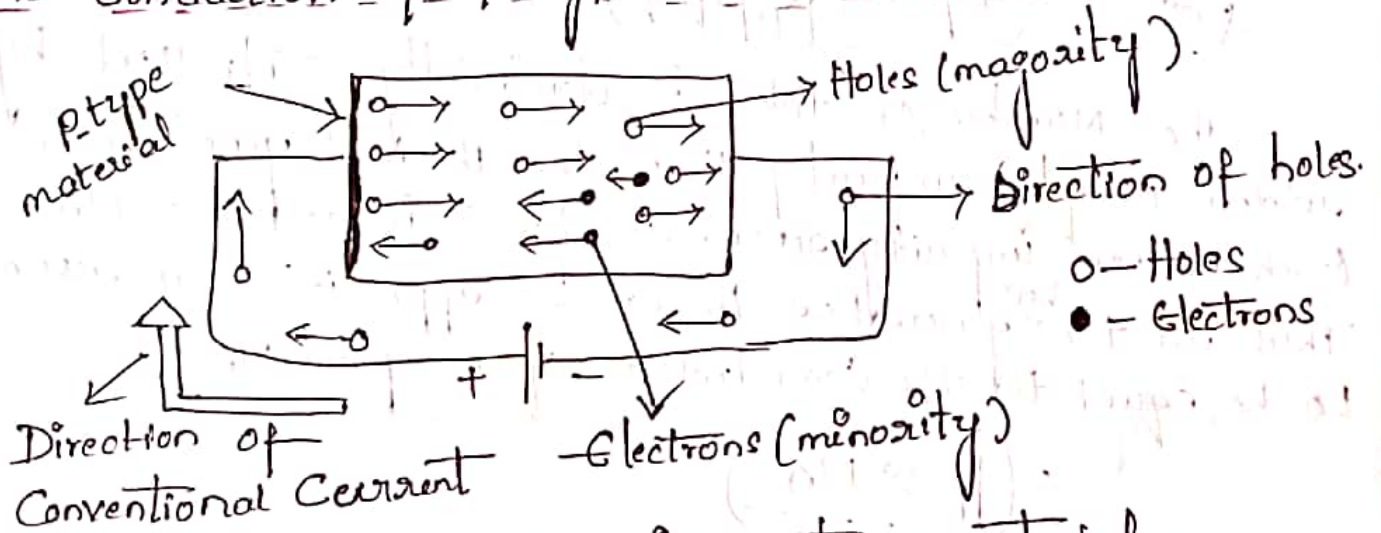 Conduction
p-type
material
Holes (magority).
Direction of holes.
o – Holes
● – Electrons
+ –
Direction of
Conventional Current
Electrons (minority)